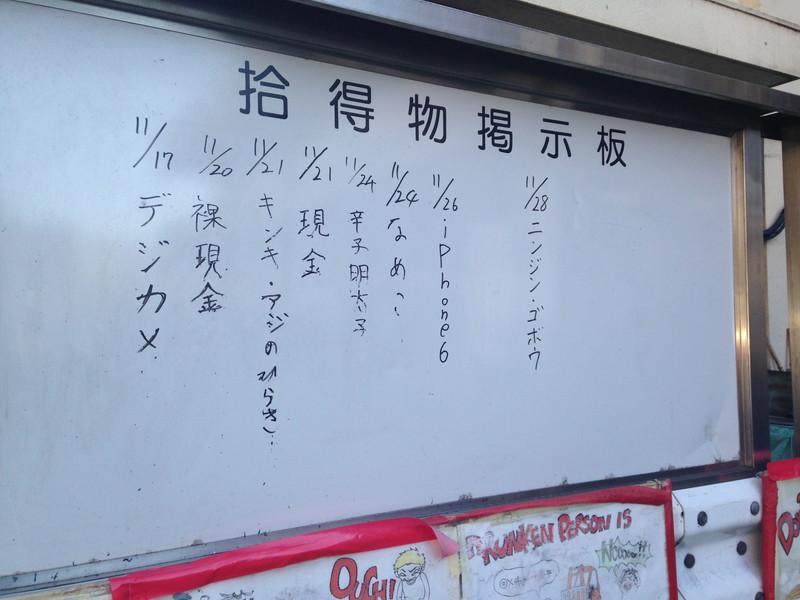 拾得物掲示板
11/17 デジカメ
11/20 裸現金
11/21 キンキ・アジのひらき
11/21 現金
11/24 辛子明太子
11/24 なめこ
11/26 iPhone6
11/28 ニンジン・ゴボウ
OUCH!
DRUNKEN PERSON IS
Nooooo!!!